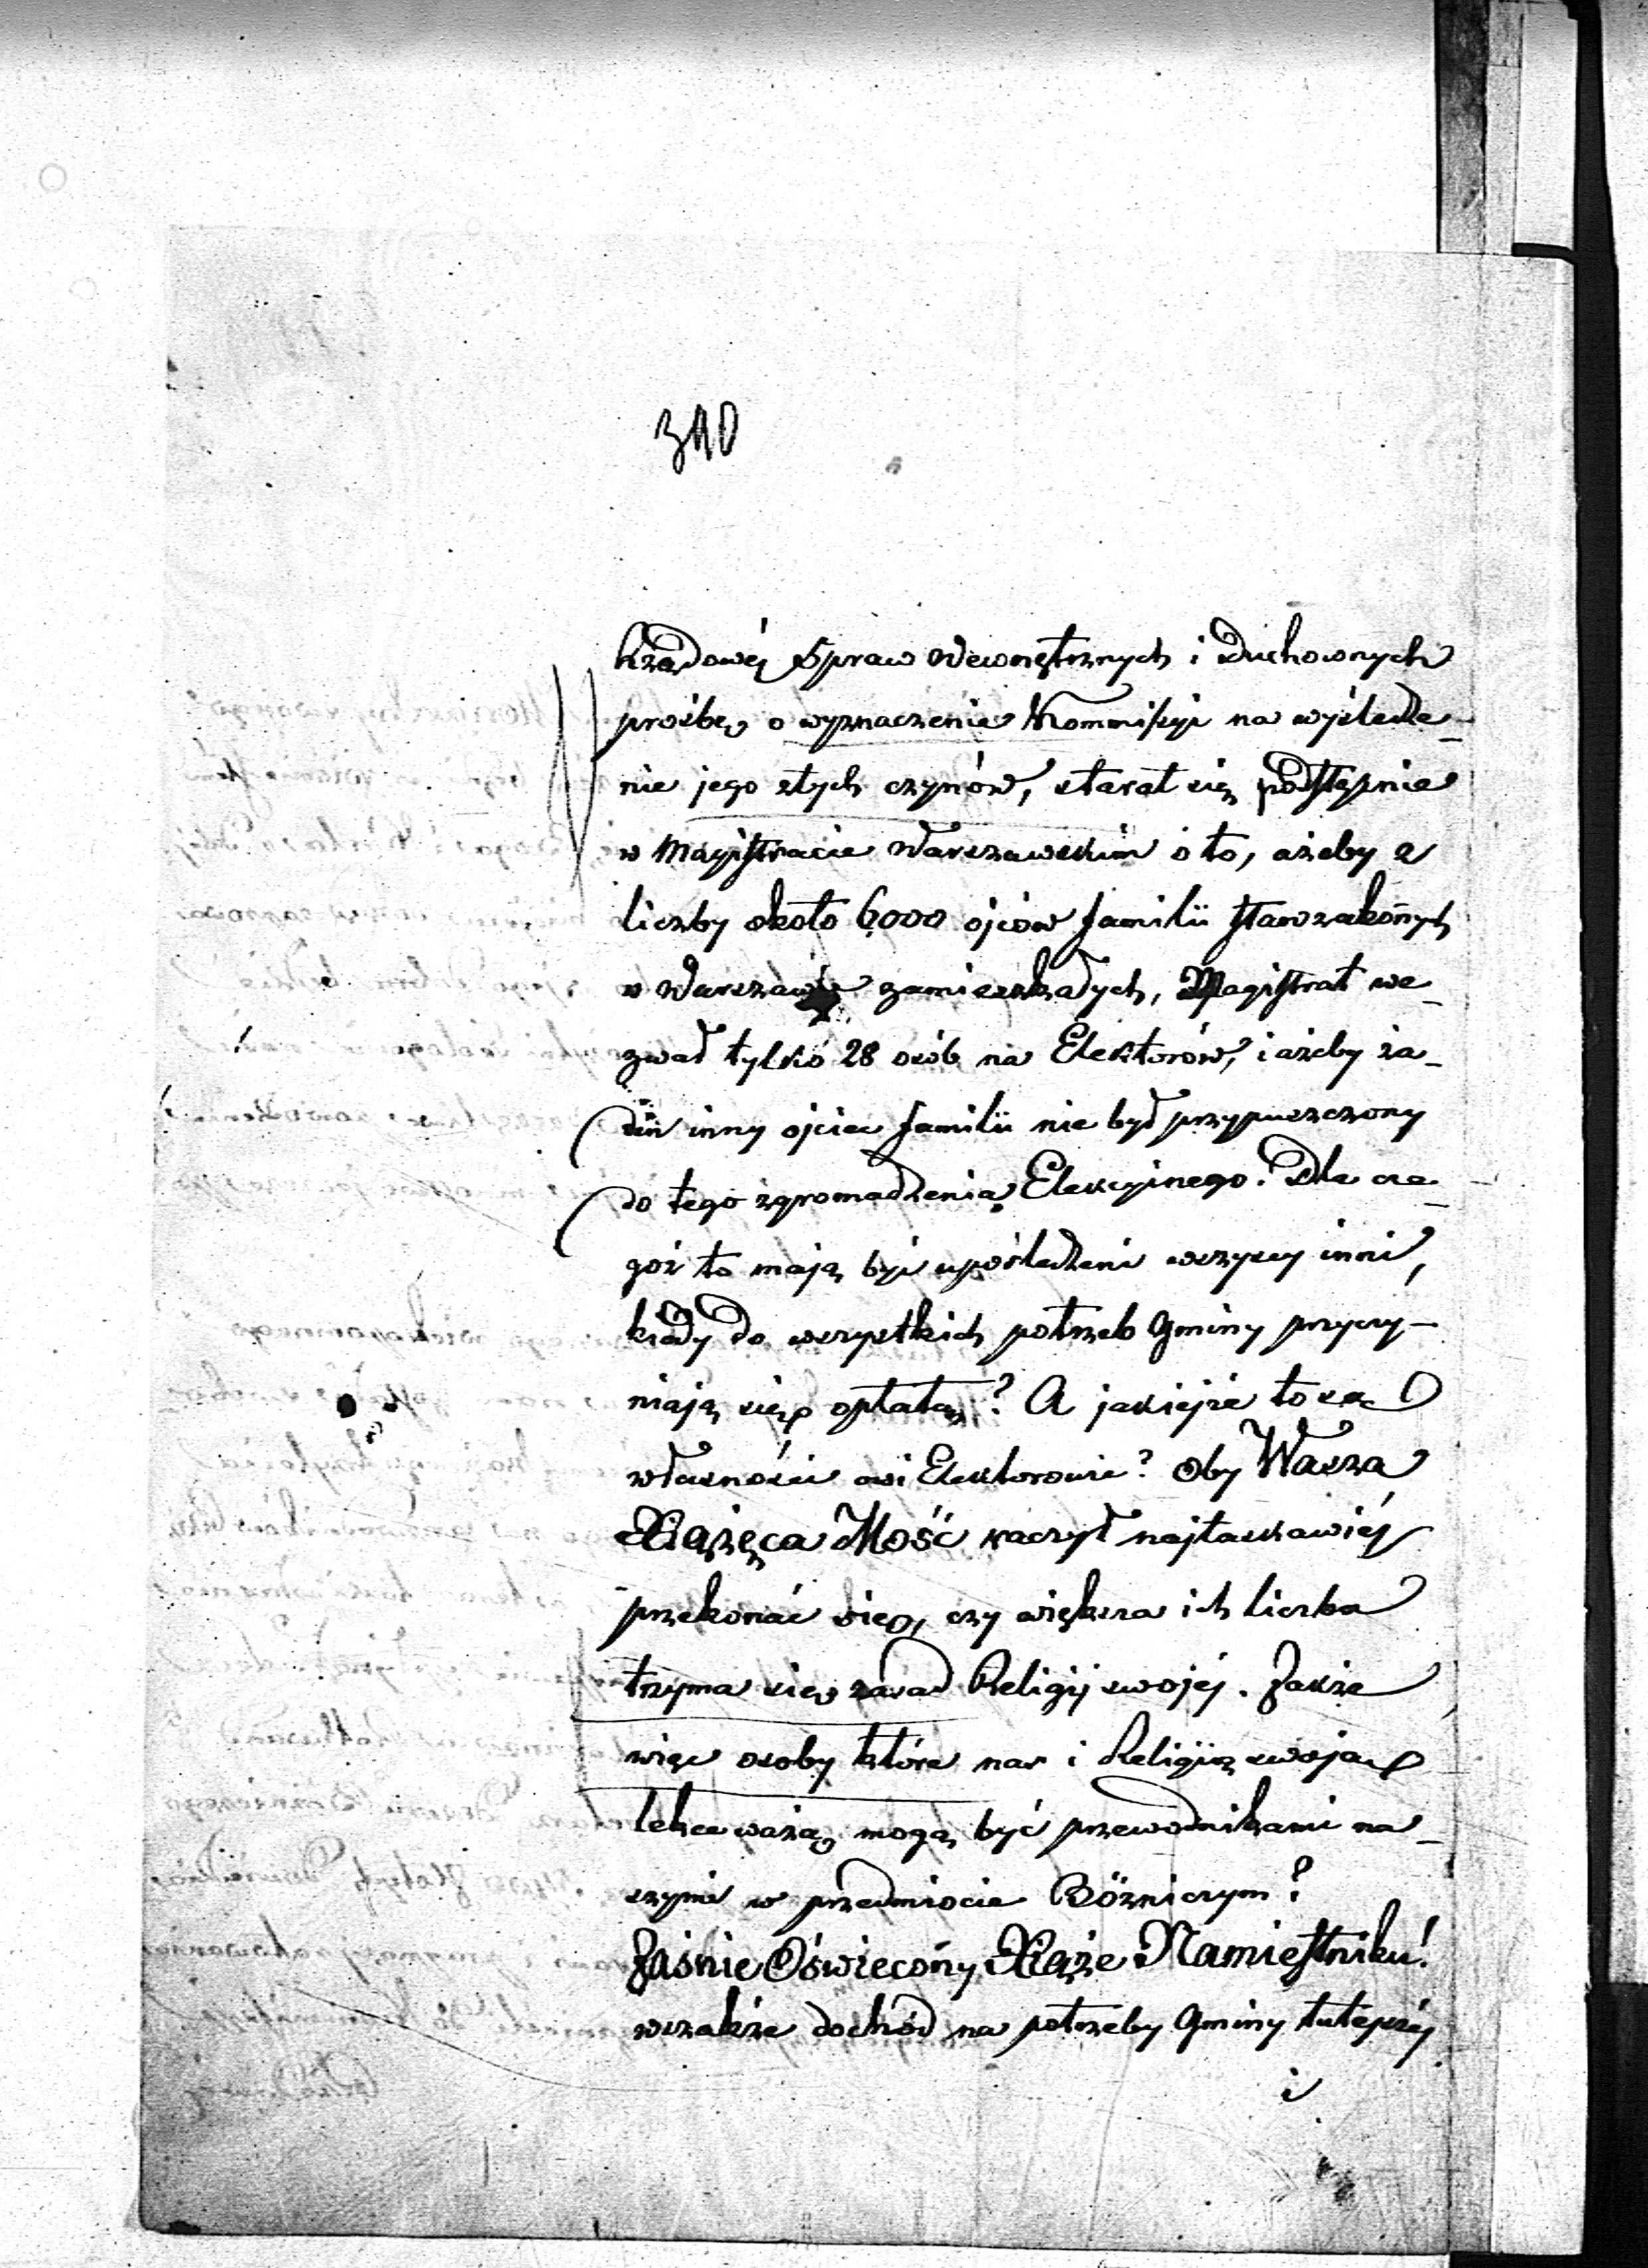 310
Rządowéj Spraw Wewnętrznych i Duchownych
prośbę, o wyznaczenie Kommissyi na wyśledze-
nie jego złych czynów, starał się podstępnie
w Magistracie Warszawskim o to, ażeby z
liczby około 6000 ojców familii starozakonych
w Warszawie zamieszkałych, Magistrat we-
zwał tylko 28 osób na Elektorów, i ażeby ża-
den inny ojciec familii nie był przypuszczony
do tego zgromadzenia Elekcyinego. Dla cze-
góż to mają być upośledzeni wszyscy inni,
kiedy do wszystkich potrzeb Gminy przyczy-
niają się opłatą? A jakiejże to są
własności owi Elektorowie? Oby Wasza
Xiążęca Mość raczył najłaskawiéj
przekonać się, czy większa ich liczba
trzyma się zasad Religij swojéj. Jakże
więc osoby które nas i Religiię swoją
lekce ważą, mogą być przewodnikami na-
szymi w przedmiocie Bóżniczym?
Jaśnie Oświecony Xiąże Namiestniku!
wszakże dochód na potrzeby Gminy tutejszéj
i